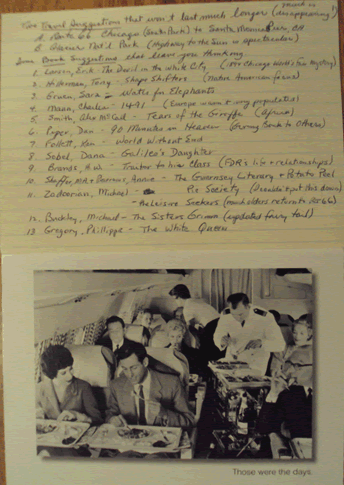 Two Travel Suggestions that won't last much longer (much is disappearing!)
A. Route 66 Chicago (Grants Park) to Santa Monica Pier, CA
B. Glacier Nat'l Park (Highway to the Sun is spectacular)
Some Book Suggestions that leave you thinking
1. Larson, Erik - The Devil in the White City (1893 Chicago World's Fair Mystery)
2. Hillerman, Tony - Shape Shifters (Native American focus)
3. Gruen, Sara - Water for Elephants
4. Mann, Charles - 1491 (Europe wasn't only population)
5. Smith, Alex McCall - Tears of the Giraffe (Africa)
6. Piper, Don - 90 Minutes in Heaven (Giving back to others)
7. Follett, Ken - World Without End
8. Sobel, Dana - Galileo's Daughter
9. Brands, H.W. - Traitor to his Class (FDR's life + relationships)
10. Shaffer, M.A. + Barrows, Annie - The Guernsey Literary + Potato Peel Pie Society (Couldn't put this down)
11. Zadoorian, Michael - The Leisure Seekers (much older return to Rt 66)
12. Buckley, Michael - The Sisters Grimm (updated fairy tail)
13. Gregory, Phillippe - The White Queen
Those were the days.